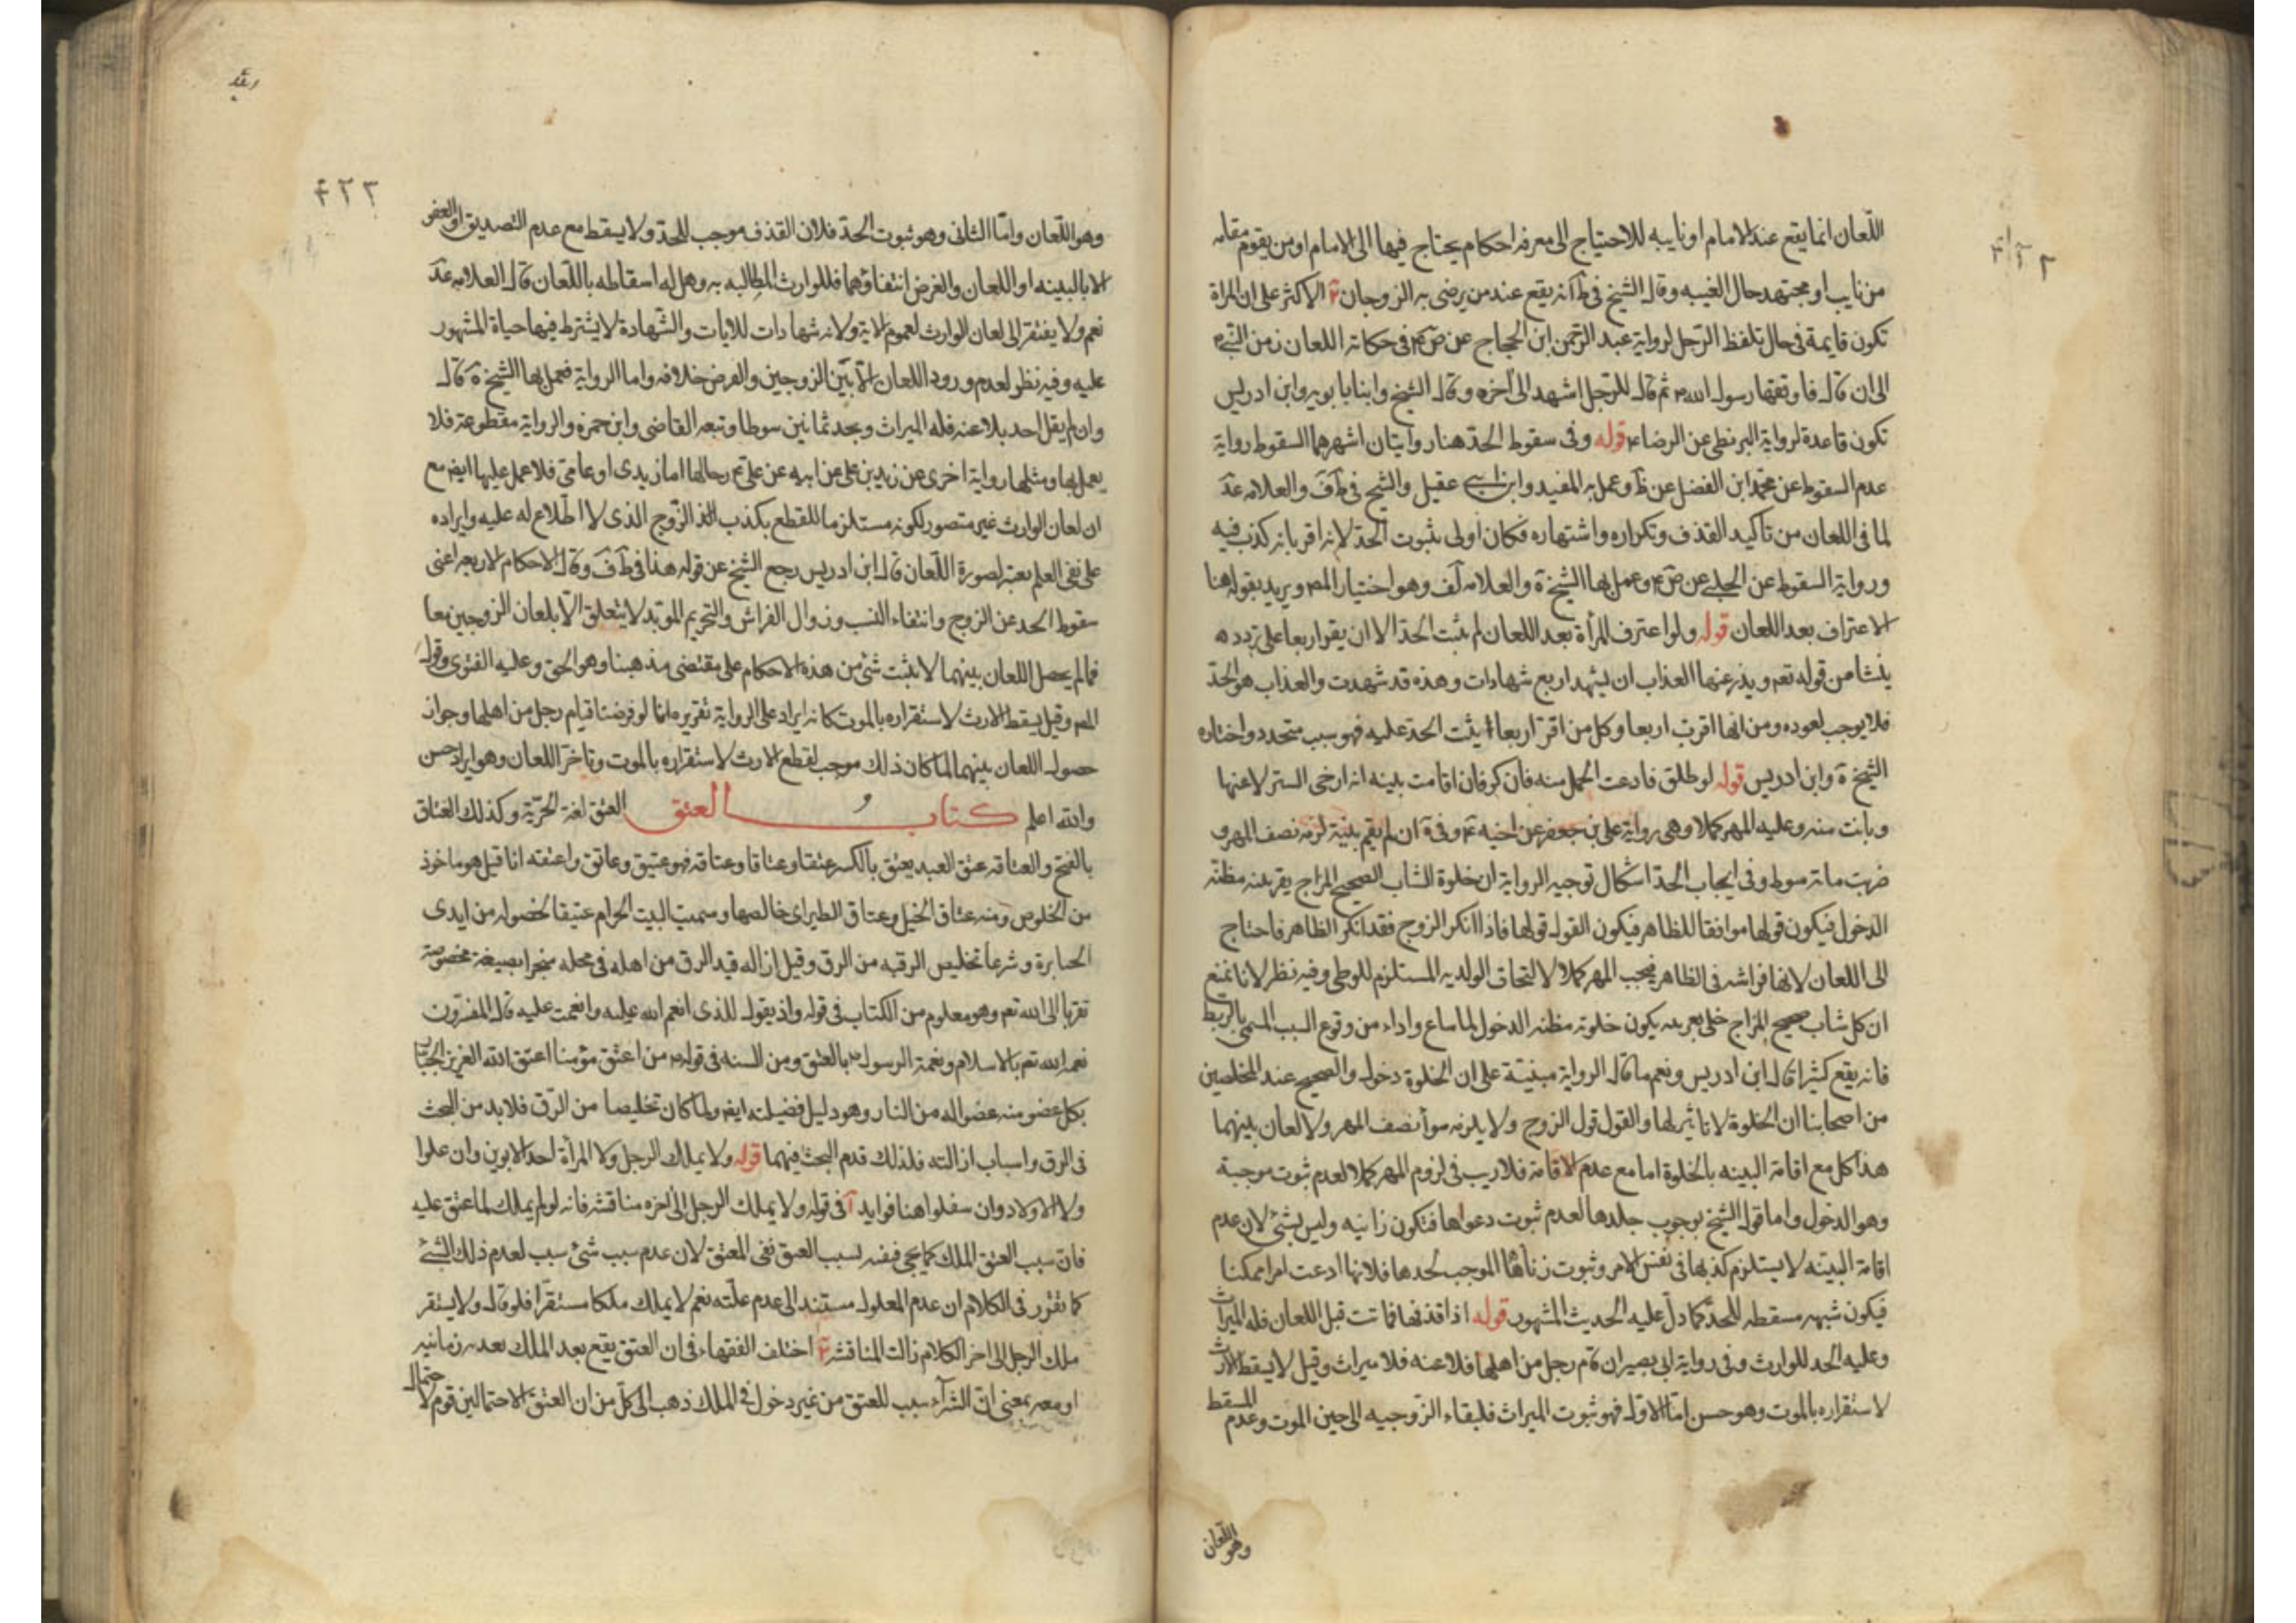 اللّعان انما يقع عند الامام او نايبه للاحتياج الى معرفه احكام يحتاج فيها الى الامام او من يقوم مقامه
من نايب او مجتهد حال الغيبه وقال الشيخ فى ط انه يقع عند من يرضى به الزوجان الاكثر على ان المراة
تكون قايمة فى حال تلفظ الرّجل لرواية عبد الرّحمن ابن الحجاج عن ص فى حكاته اللعان زمن النّبى
الى ان قال فاوقفها رسول الله ثم قال للرّجل اشهد الى آخره وقال الشيخ وابنا بابويه وابن ادريس
تكون قاعدة لرواية البزنطى عن الرضا قوله وفى سقوط الحدّ هنا روايتان اشهرهما السقوط رواية
عدم السقوط عن محمد ابن الفضل عن ظ وعمل به المفيد وابن ابى عقيل والشيخ فى ط ف والعلامه عد
لما فى اللعان من تاكيد القذف وتكراره واشتهاره فكان اولى بثبوت الحدّ لانه اقر بانه كذب فيه
ورواية السقوط عن الحلبى عن ص وعمل بها الشيخ ة والعلامه لف وهو اختيار المص ويريد بقوله هنا
الاعتراف بعد اللعان قوله ولو اعترف المرأة بعد اللعان لم يثبت الحدّ الا ان يقر اربعا على تردد ه
ينشا من قوله تعم ويدرء عنها العذاب ان تشهد اربع شهادات وهذه قد شهدت والعذاب هو الحدّ
فلا يوجب لعوده ومن انها اقرت اربعا وكل من اقرّ اربعا يثبت الحد عليه فهو سبب متجدد واختاره
الشيخ ة وابن ادريس قوله لو طلق فادعت الحمل منه فانكر فان اقامت بينه انه ارخى الستر لاعنها
وبانت منه وعليه المهر كملا وهى رواية على بن جعفر عن اخيه وفى ة ان لم يقم بينة لزمه نصف المهر و
ضربت مائة سوط وفى ايجاب الحدّ اشكال توجيه الرواية ان خلوة الشاب الصحيح المزاج بقرينه مظنه
الدخول فيكون قولها موافقا للظاهر فيكون القول قولها فاذا انكر الزوج فقد انكر الظاهر فاحتاج
الى اللعان لانها فراشه فى الظاهر فيجب المهر كملا لالتحاق الولد به المستلزم للوطى وفيه نظر لانا نمنع
ان كل شاب صحيح المزاج خلى بغريبه يكون خلوته مظنه الدخول لما ساغ واداء من وقوع السبب المسمى بالربط
فانه يقع كثيرا قال ابن ادريس ونعم ما قال الرواية مبنيّة على ان الخلوة دخول والصحيح عند المحصلين
من اصحابنا ان الخلوة لا تاثير لها والقول قول الزوج ولا يلزمه سوأ نصف المهر ولا لعان بينهما
هذا كل مع اقامة البينه بالخلوة اما مع عدم الاقامة فلا ريب فى لزوم المهر كملا لعدم ثبوت موجبه
وهو الدخول واما قول الشيخ بوجوب جلدها لعدم ثبوت دعواها فتكون زانيه وليس بشئ لان عدم
اقامة البينه لا يستلزم كذبها فى نفس الامر وثبوت زناها الموجب لحدها فلانها ادعت امرا ممكنا
فيكون شبهه مسقطه للحدّ كما دلّ عليه الحديث المشهور قوله اذا قذفها فماتت قبل اللعان فله الميراث
وعليه الحد للوارث وفى رواية ابى بصير ان قام رجل من اهلها فلاعنه فلا ميراث وقيل لا يسقط الارث
لاستقراره بالموت وهو حسن امّا الاول فهو ثبوت الميراث فلبقاء الزوجيه الى حين الموت وعدم المسقط
وهو اللّعان
٤٢٢
وهو اللّعان وامّا الثانى وهو ثبوت الحدّ فلان القذف موجب للحدّ ولا يسقط مع عدم التصديق او العفو
الا بالبينه او اللعان والغرض انتفاؤهما فللوارث المطالبه به وهل له اسقاطه باللّعان قال العلامه عد
نعم ولا يفتقر الى لعان الوارث لعموم الاية ولانه شهادات للايات والشهادة لا يشترط فيها حياة المشهور
عليه وفيه نظر لعدم ورود اللعان الا بين الزوجين والفرض خلافه واما الرواية فعمل بها الشيخ ة قال
وان لم يقل احد بلاعنه فله الميراث ويحد ثمانين سوطا وتبعه القاضى وابن حمزه والرواية مقطوعة فلا
يعمل بها ومثلها رواية اخرى عن زيد بن على عن ابيه عن على رجالها اما زيدى او عامى فلا عمل عليها ايض مع
ان لعان الوارث غير متصور لكونه مستلزما للقطع بكذب الزّوج الذى لا اطلاع له عليه وايراده
على نفى العلم يغير صورة اللّعان قال ابن ادريس رجع الشيخ عن قوله هذا فى ط ف وقال الاحكام الاربعه اعنى
سقوط الحد عن الزوج وانتفاء النسب وزوال الفراش والتحريم المؤبد لا يتعلق الّا بلعان الزوجين معا
فما لم يحصل اللعان بينهما لا يثبت شئ من هذه الاحكام على مقتضى مذهبنا وهو الحق وعليه الفتوى وقول
المص وقيل يسقط الارث لاستقراره بالموت كانه ايراد على الرواية تقريره انا لو فرضنا قيام رجل من اهلها وجواز
حصول اللعان بينهما لما كان ذلك موجب لقطع الارث لاستقراره بالموت وتاخّر اللعان وهو ايراد حسن
والله اعلم كتاب العتق العتق لغة الحرّيّة وكذلك العتاق
بالفتح والعتاقه عتق العبد يعتق بالكسر عتقا وعتاقا وعتاقه فهو عتيق وعاتق واعتقه انا قيل هو ماخوذ
من الخلوص ومنه عتاق الخيل وعتاق الطير اى خالصها وسميت البيت الحرام عتيقا لخلوصه من ايدى
الجبابرة وشرعا تخليص الرقبه من الرق وقيل ازاله قيد الرق من اهله فى محله منجزا بصيغة مخصوصة
تقربا الى الله تعم وهو معلوم من الكتاب فى قوله واذ يقول للذى انعم الله عليه وانعمت عليه قال المفسّرون
نعمه الله تعم بالاسلام ونعمة الرسول بالعتق ومن السنه فى قوله من اعتق مؤمنا اعتق الله العزيز الجبّار
بكل عضو منه عضوا له من النار وهو دليل فضيلته ايض ولما كان تخليصا من الرّق فلا بد من البحث
فى الرق واسباب ازالته فلذلك قدم البحث فيهما قوله ولا يملك الرجل ولا المرأة احد الابوين وان علوا
ولا الاولاد وان سفلوا هنا فوايد آ فى قوله ولا يملك الرجل الى آخره مناقشه فانه لو لم يملك لما عتق عليه
فان سبب العتق الملك كما يجى فنفيه لسبب العتق نفى المعتق لان عدم سبب شئ سبب لعدم ذلك الشئ
كما تقرّر فى الكلام ان عدم المعلول مستند الى عدم علّته نعم لا يملك ملكا مستقرّا فلو قال ولا يستقر
ملك الرجل الى اخر الكلام زالت المناقشه اختلف الفقهاء فى ان العتق يقع بعد الملك بعديه زمانيه
او معه بمعنى ان الشرآء سبب للعتق من غير دخول فى الملك ذهب الى كلّ من ان العتق الاحتمالين قوم